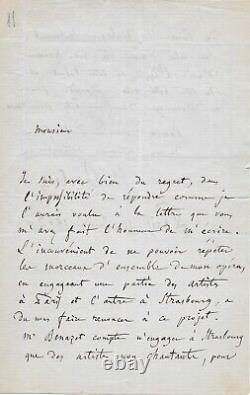 11
Monsieur
Je suis, avec bien du regret, dans
l'impossibilité de répondre comme je
l'aurais voulu à la lettre que vous
m'avez fait l'honneur de m'ecrire.
L'inconvénient de ne pouvoir répéter
les morceaux d'ensemble de mon opéra,
en engageant une partie des artistes
à Paris et l'autre à Strasbourg, a
du me faire renoncer à ce projet.
Mr Benazet compte n'engager à Strasbourg
que des artistes non chantants, pour
ebay